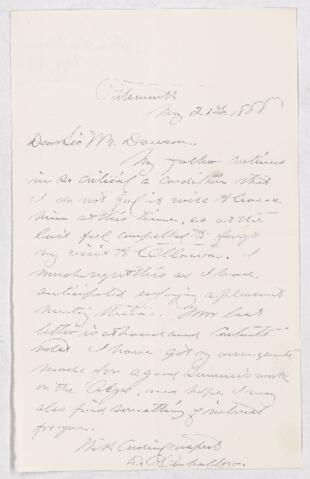 Portsmouth
May 21st, 1888
Dear Sir Mr. Dawson.
My father continues
in so critical a condition that
I do not feel it wise to leave
him at this time, so at the
last feel compelled to forego
my visit to Ottawa. I
much regret this as I have
anticipated enjoying a pleasant
meeting there. Your last
letter is at hand and contents
noted. I have got my arrangements
made for a good Summer's work
on the and hope I may
also find something of interest
for you.
With respect